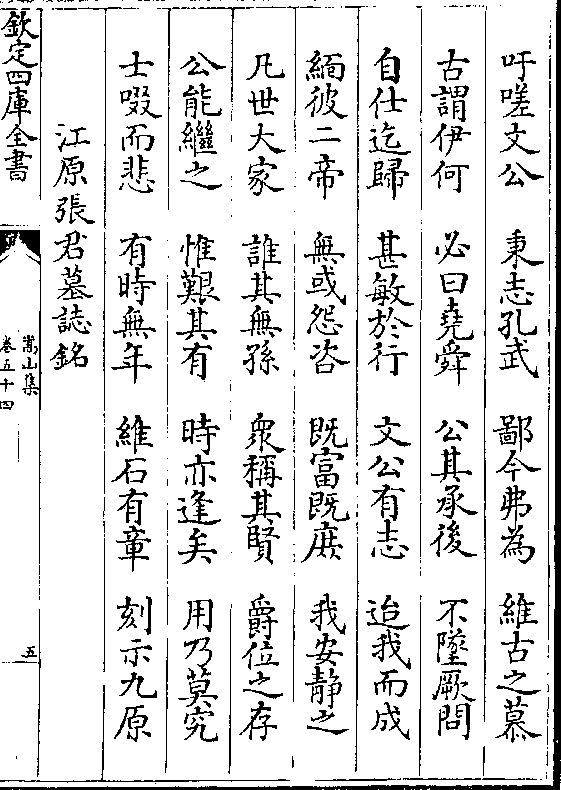 吁嗟文公　秉志孔武　鄙今弗為　維古之慕
古謂伊何　必曰堯舜　公其承後　不墜厥問
自仕迄歸　甚敏於行　文公有志　迨我而成
緬彼二帝　無或怨咨　既富既庶　我安靜之
凡世大家　誰其無孫　衆稱其賢　爵位之存
公能繼之　惟艱其有　時亦逢矣　用乃莫究
士啜而悲　有時無年　維石有章　刻示九原
江原張君墓誌銘
欽定四庫全書
嵩山集
卷五十四
五